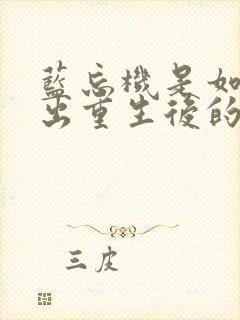 藍忘機是如
出重生後的
三皮